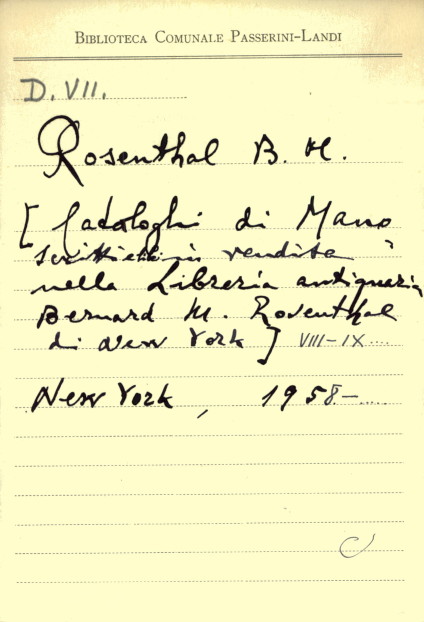 BIBLIOTECA COMUNALE PASSERINI-LANDI
D. VII.
Rosenthal B. M.
[Cataloghi di Mano
scritti in vendita
nella Libreria antiquaria
Bernard M. Rosenthal
di New York] VIII-IX
New York, 1958-